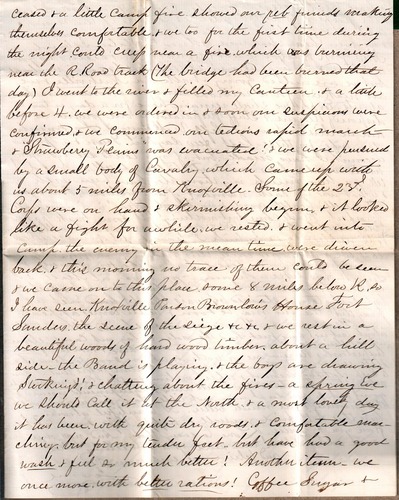 ceased & a little Camp fire showed our reb friends making
themselves comfortable & we too for the first time during
the night could creep near a fire which was burning
near the R. Road track (The bridge had been burned that
day) I went to the river & filled my Canteen. & a little
before 4. we were ordered in & soon our suspicions were
confirmed, & we commenced our tedious rapid march
& "Strawberry Plains" was evacuated! & we were pursued
by a small body of Cavalry, which came up with
us about 5 miles from Knoxville. Some of the 23d.
Corps were on hand & skirmishing began, & it looked
like a fight for awhile. we rested. & went into
Camp. the enemy in the mean time were driven
back, & this morning no trace of them could be seen
& we came on to this place some 8 miles below K. so
I have seen Knoxville Parson Brownlow's House Fort
Sanders, the scene of the siege &c &c & we rest in a
beautiful woods of hard wood timber. about a hill
side. the Band is playing, & the boys are drawing
Stockings, & chattering about the fires – a spring we
we should call it at the North. & a most lovely day
it has been. with quite dry roads. & comfortable mar
ching, but for my tender feet. but have had a good
wash & feel so much better! Another item. we
once more, with better rations! Coffee Sugar &